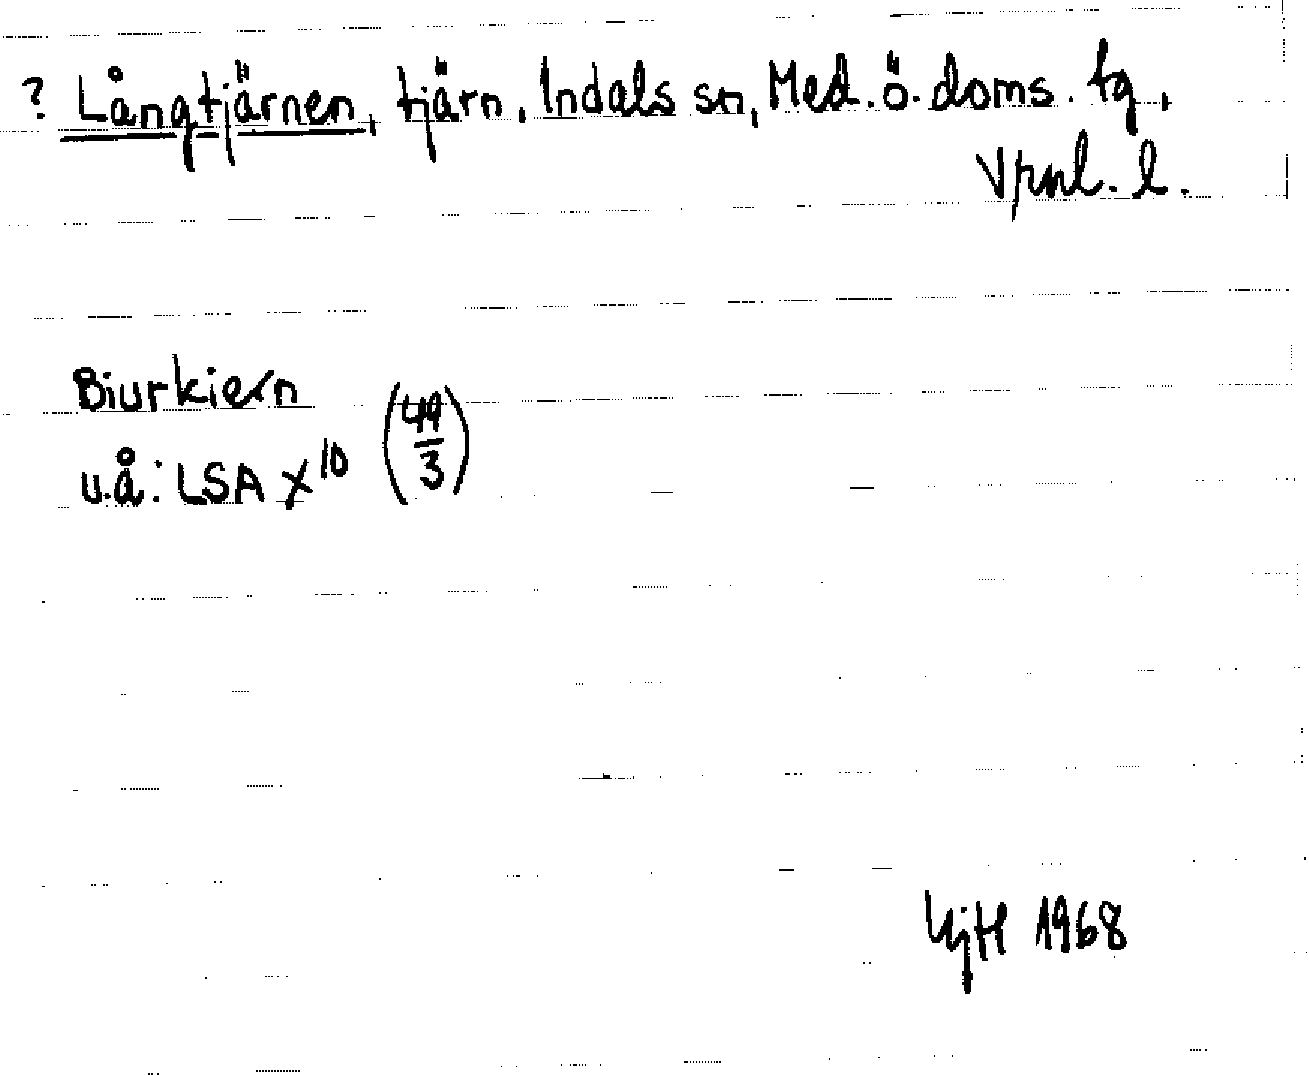 ? Långtjärnen, tjärn, Indals sn, Med. ö. doms. tg,
Vrnl. l.
Biurkiern
u.å: LSA X¹⁰ (49/3)
1968